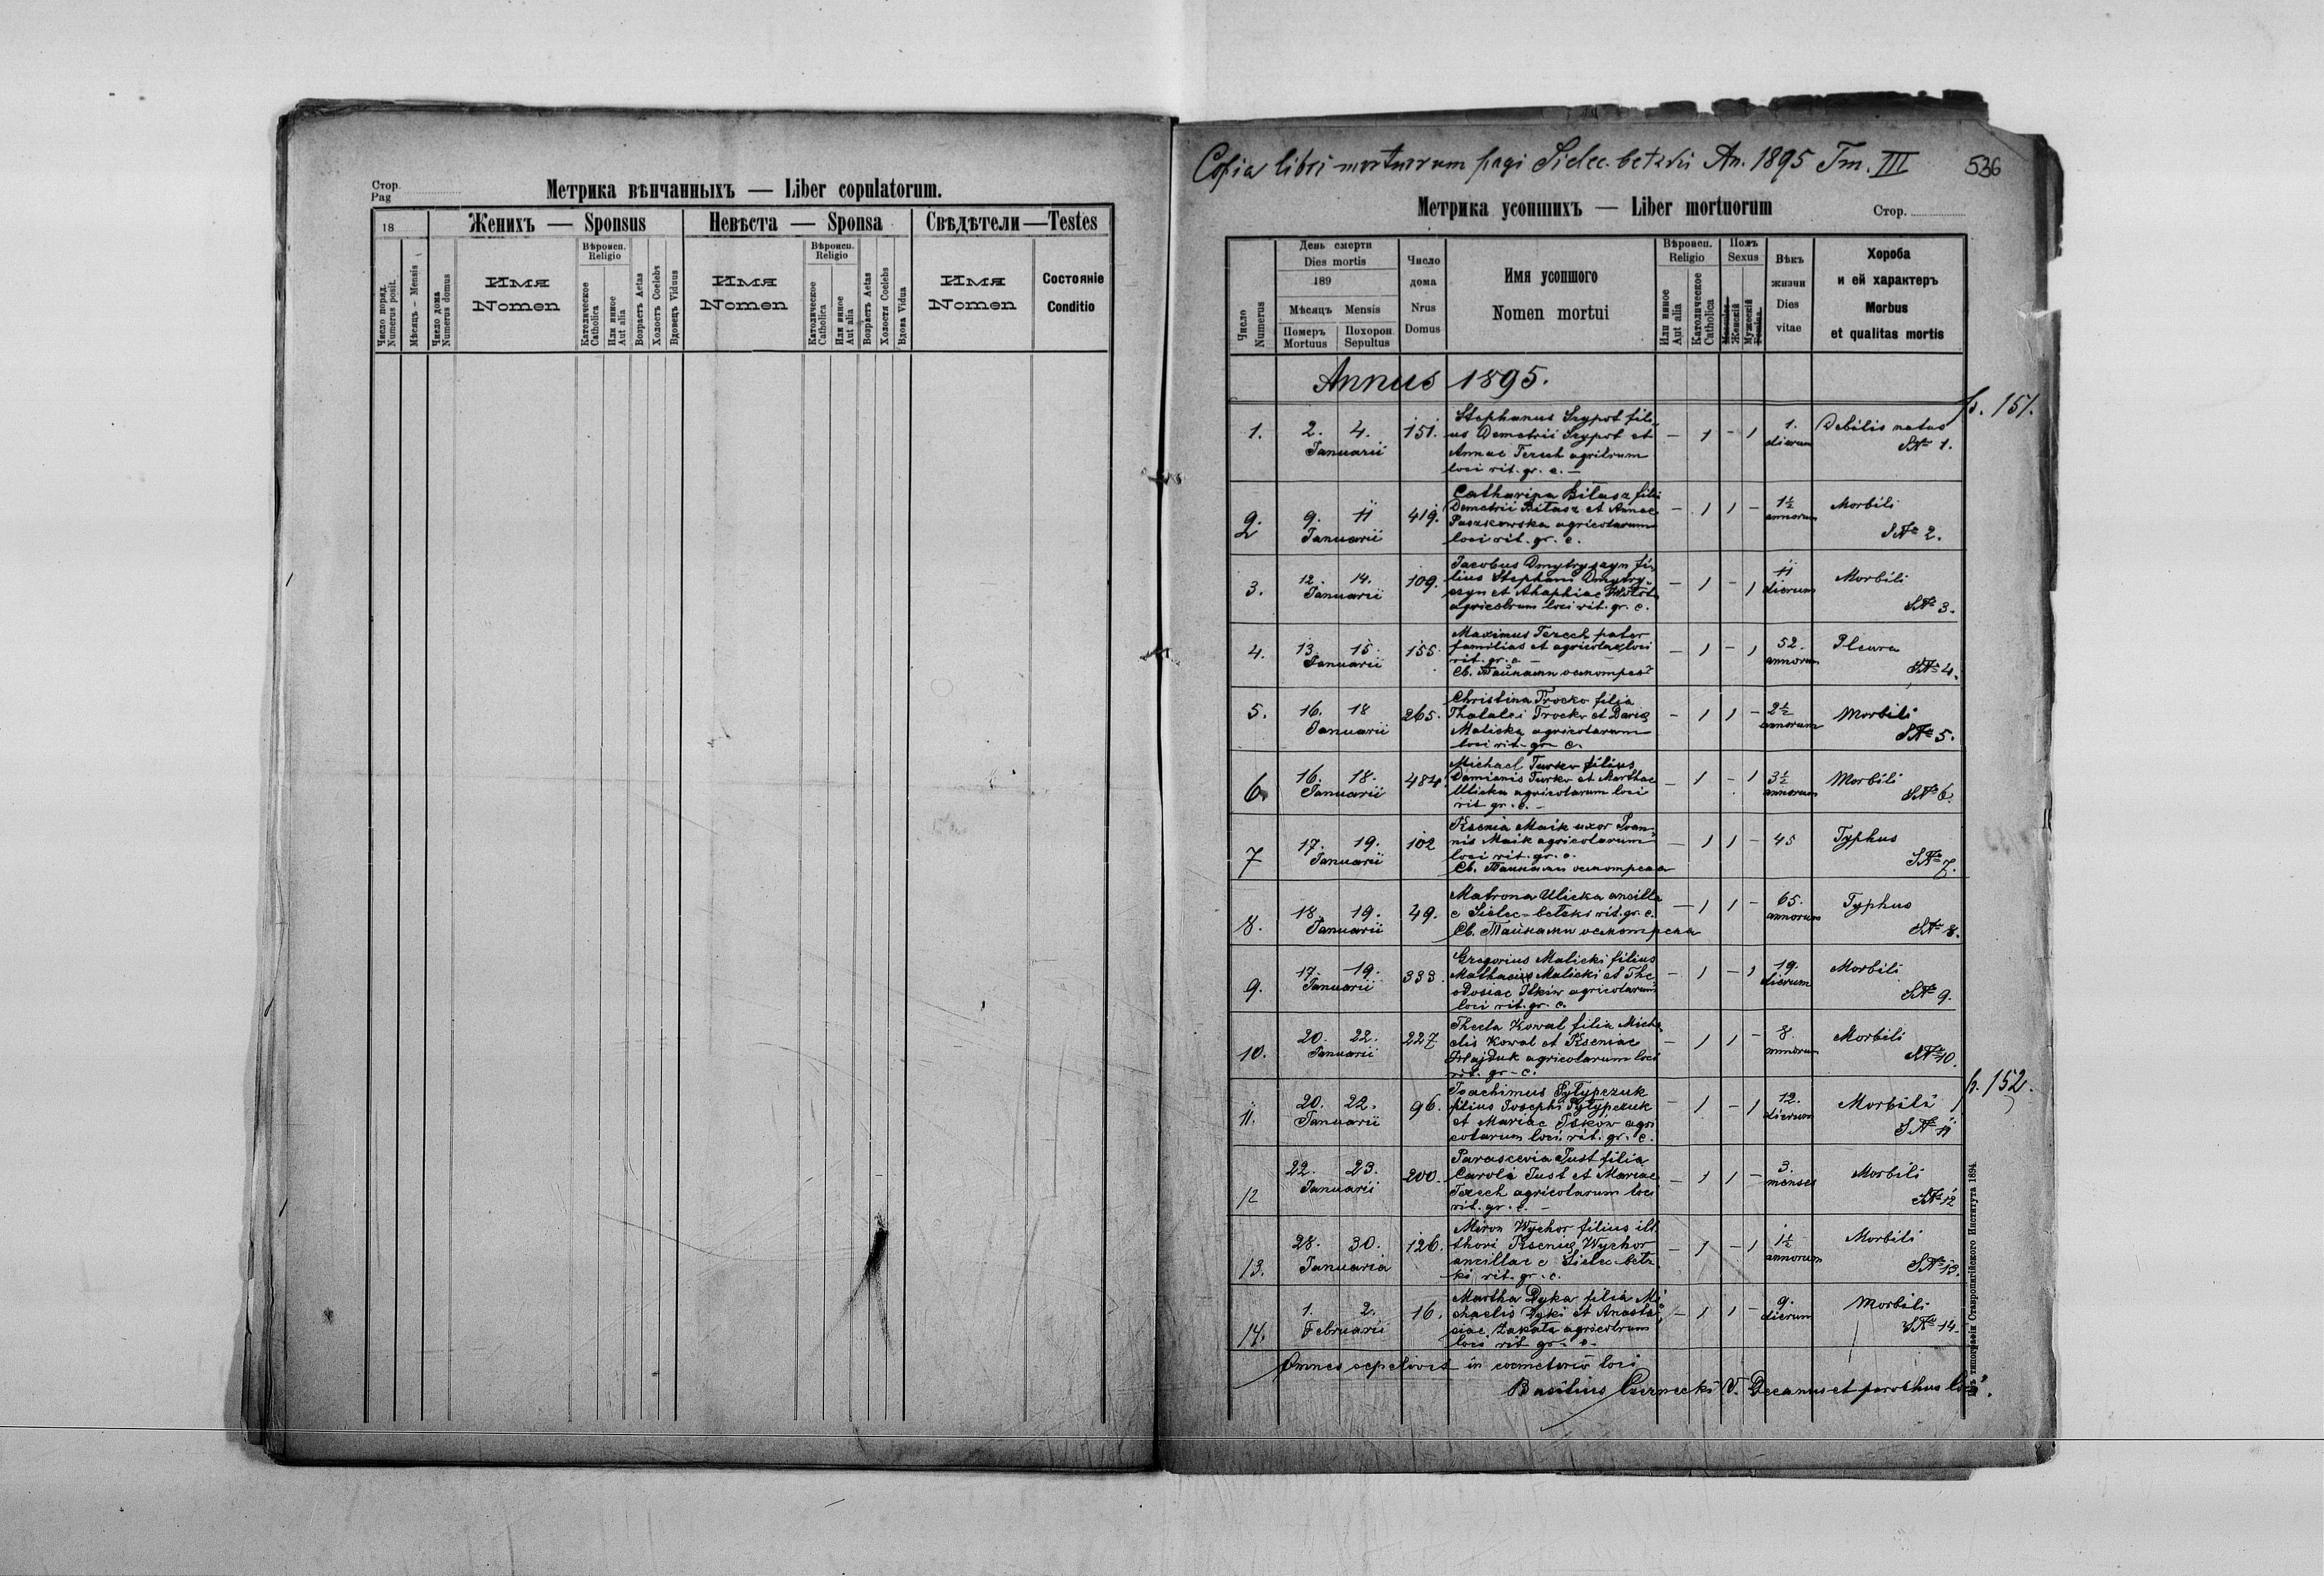 Стор.
Pag
Метрика вѣнчанныхъ — Liber copulatorum.
18
Женихъ — Sponsus
Невѣста — Sponsa
Свѣдѣтели — Testes
Число поряд.
Numerus posit.
Мѣсяцъ – Mensis
Число дома
Numerus domus
Имя
Nomen
Вѣроисп.
Religio
Католическое
Catholica
Или инное
Aut alia
Возрастъ Aetas
Холостъ Coelebs
Вдовецъ Viduus
Имя
Nomen
Вѣроисп.
Religio
Католическое
Catholica
Или инное
Aut alia
Возрастъ Aetas
Холостя Coelebs
Вдова Vidua
Имя
Nomen
Состояніе
Conditio
Copia libri mortuorum pagi Sielec-bełzki An. 1895 Tm. III
536
Метрика усопшихъ — Liber mortuorum
Стор.
Число
Numerus
День смерти
Dies mortis
189
Мѣсяцъ Mensis
Померъ
Mortuus
Похорон.
Sepultus
Число
дома
Nrus
Domus
Имя усопшого
Nomen mortui
Вѣроисп.
Religio
Или инное
Aut alia
Католическое
Catholica
Полъ
Sexus
Женскій
Мужескій
Вѣкъ
жизни
Dies
vitae
Хороба
и ей характеръ
Morbus
et qualitas mortis
Annus 1895.
p. 151.
1. 2. 4. Januarii 151. — 1 - 1 1. dierum Debilis natus S№ 1.
Stephanus Szypot fili-
us Demetrii Szypot et
Annae Terech agricolarum
loci rit. gr. c. —
2 9. 11 Januarii 419. — 1 1 — 1½ annorum Morbili S№ 2.
Catharina Biłasz filia
Demetrii Biłasz et Annae
Paszkowska agricolarum
loci rit. gr. c.
3. 12. 14. Januarii 109. — 1 - 1 11 dierum Morbili S№ 3.
Jacobus Dmytryszyn fi-
lius Stephani Dmytry-
szyn et Ahaphiae
agricolarum loci rit. gr. c.
4. 13 15. Januarii 155. — 1 - 1 52. annorum Pleura S№ 4.
Maximus Terech pater
familias et agricola loci
rit. gr. c —
Св. Тайнами осмотренъ
5. 16. 18 Januarii 265. — 1 1 — 2½ annorum Morbili S№ 5.
Christina Trocko filia
Thalalei Trocko et Daria
Malicka agricolarum
loci rit. gr. c.
6. 16. 18. Januarii 484. — 1 - 1 3½ annorum Morbili S№ 6.
Michael Turko filius
Damianis Turko et Marthae
Ulicka agricolarum loci
rit gr. c. —
7 17. 19. Januarii 102 — 1 1 — 45 Typhus S№ 7.
Ksenia Maik uxor Joan-
nis Maik agricolarum
loci rit. gr. c.
Св. Тайнами осмотрена
8. 18. 19. Januarii 49. — 1 1 — 65. annorum Typhus S№ 8.
Matrona Ulicka ancilla
e Sielec-bełzki rit. gr. c.
Св. Тайнами осмотрена
9. 17. 19. Januarii 333. — 1 - 1 19. dierum Morbili S№ 9.
Gregorius Malicki filius
Mathaeus Malicki et The-
odosiae Ilkiw agricolarum
loci rit. gr. c.
10. 20. 22. Januarii 227. — 1 1 — 8. annorum Morbili S№ 10.
Thecla Kowal filia Micha-
elis Kowal et Kseniae
Hajduk agricolarum loci
rit. gr. c.
p. 152.
11. 20. 22. Januarii 96. — 1 - 1 12. dierum Morbili S№ 11
Joachimus Pyłypczuk
filius Josephi Pyłypczuk
et Mariae agri-
colarum loci rit. gr. c.
12 22. 23. Januarii 200. — 1 1 — 3. menses Morbili S№ 12
Parascevia Just filia
Caroli Just et Mariae
Terech agricolarum loci
rit. gr. c. —
13. 28. 30. Januaria 126. — 1 - 1 1½ annorum Morbili S№ 13.
Miron Wychor filius ill.
thori Ksenia Wychor
ancillae e Sielec-bełz
ki rit. gr. c.
14. 1. 2. Februarii 16. — 1 1 — 9. dierum Morbili S№ 14.
Martha Dyka filia Mi-
chaelis Dyki et Anasta-
siae agricolarum
loci rit gr. c.
Omnes sepelivit in coemeterio loci
Basilius Czernecki V. Decanus et parochus loci.
Изъ типографіи Ставропигійского Института 1894.